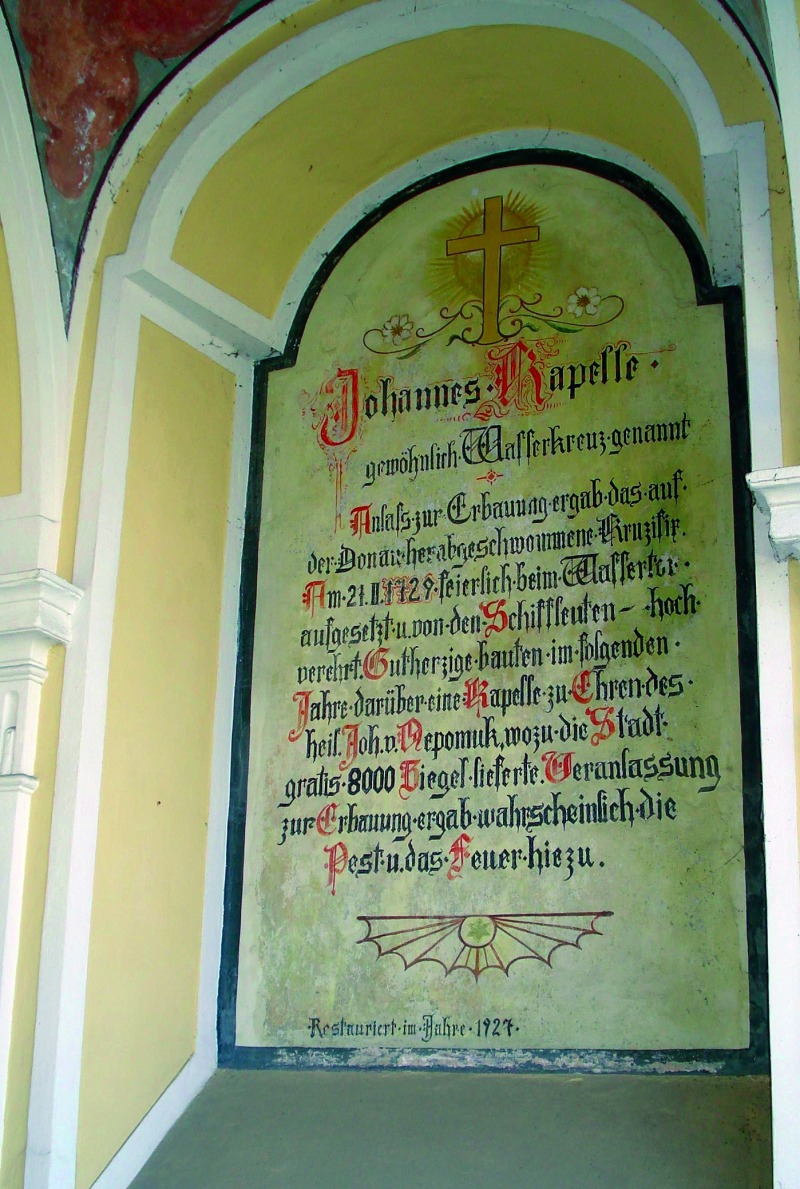 Johannes·Kapelle·
gewöhnlich·Wasserkreuz·genannt
Anlass·zur·Erbauung·ergab·das·auf·
der·Donau·herabgeschwommene·Kruzifix.
Am·21.II.1729·feierlich·beim·Wassertor·
aufgesetzt·u.von·den·Schiffleuten–·hoch·
verehrt.Gutherzige·bauten·im·folgenden·
Jahre·darüber·eine·Kapelle·zu·Ehren·des·
heil.Joh.v.Nepomuk,wozu·die·Stadt·
gratis·8000·Ziegel·lieferte.Veranlassung
zur·Erbauung·ergab·wahrscheinlich·die
Pest·u.das·Feuer·hiezu.
·Restauriert·im·Jahre·1927·